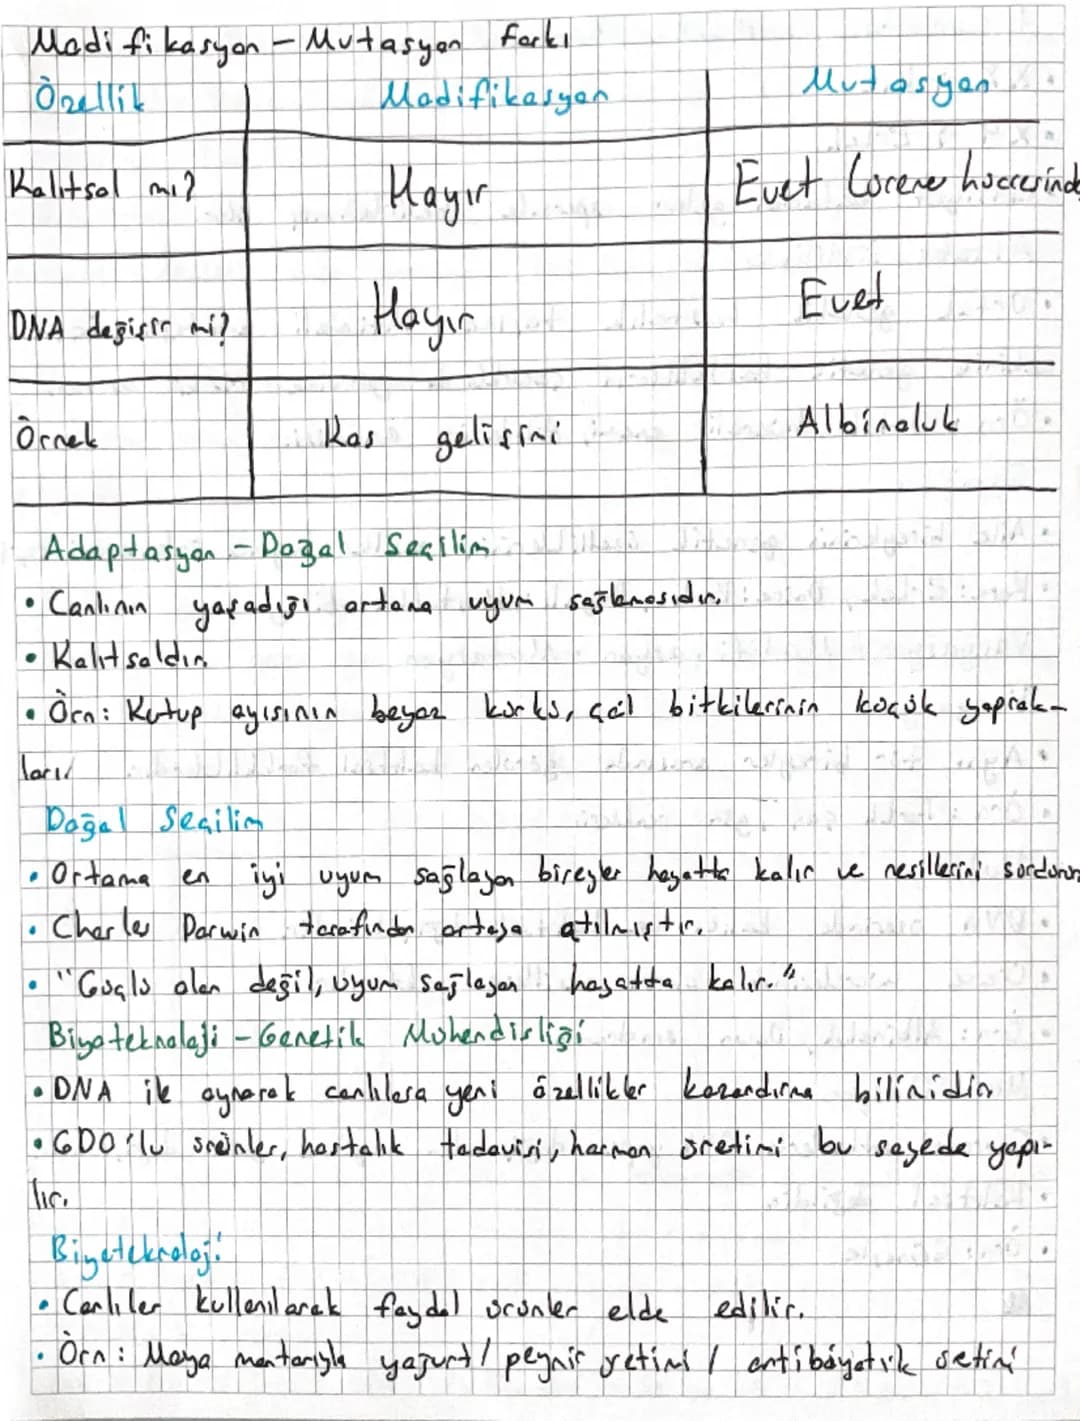 Modifikasyon - Mutasyon Farkı
Özellik Modifikasyon Mutasyon
Kalıtsal mı? Hayır Evet (üreme hücresinde
DNA değişir mi? Hayır Evet
Örnek Kas gelişimi Albinoluk
Adaptasyon - Doğal Seçilim
• Canlının yaşadığı ortama uyum sağlamasıdır.
• Kalıtsaldır.
• Örn: Kutup ayısının beyaz kürkü, çöl bitkilerinin küçük yaprak-
ları.
Doğal Seçilim
• Ortama en iyi uyum sağlayan bireyler hayatta kalır ve nesillerini sürdürür
• Charles Darwin tarafından ortaya atılmıştır.
• "Güçlü olan değil, uyum sağlayan hayatta kalır."
Biyoteknoloji - Genetik Mühendisliği
• DNA ile oynarak canlılara yeni özellikler kazandırma bilimidir
• GDO'lu ürünler, hastalık tedavisi, hormon üretimi bu sayede yapı-
lır.
Biyoteknoloji
• Canlılar kullanılarak faydalı ürünler elde edilir.
• Örn: Maya mantarıyla yoğurt / peynir üretimi / antibiyotik üretimi